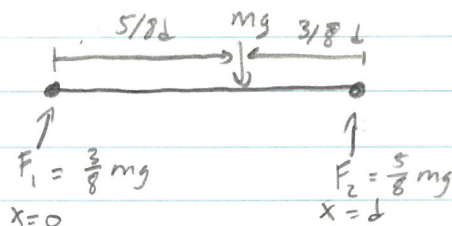 5/8d mg 3/8 d
F₁ = 3/8 mg F₂ = 5/8 mg
x=0 x=d